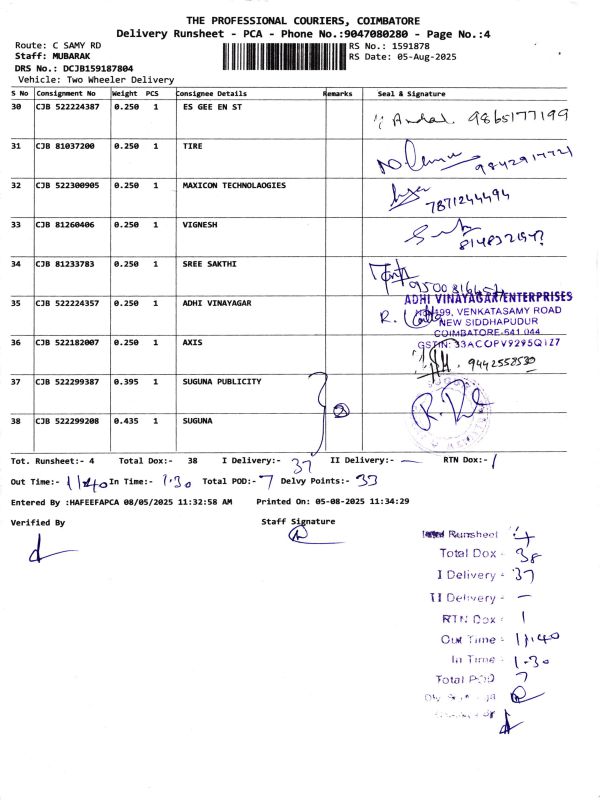 THE PROFESSIONAL COURIERS, COIMBATORE
Delivery Runsheet - PCA - Phone No.:9047080280 - Page No.:4
Route: C SAMY RD
RS No.: 1591878
Staff: MUBARAK
RS Date: 05-Aug-2025
DRS No.: DCJB159187804
Vehicle: Two Wheeler Delivery
S No Consignment No Weight PCS Consignee Details Remarks Seal & Signature
30 CJB 522224387 0.250 1 ES GEE EN ST
9865177199
31 CJB 81037200 0.250 1 TIRE
9842917721
32 CJB 522300905 0.250 1 MAXICON TECHNOLAOGIES
7871244494
33 CJB 81260406 0.250 1 VIGNESH
34 CJB 81233783 0.250 1 SREE SAKTHI
35 CJB 522224357 0.250 1 ADHI VINAYAGAR
ADHI VINAYAGAR ENTERPRISES
199, VENKATASAMY ROAD
NEW SIDDHAPUDUR
COIMBATORE-641 044
GSTIN: 33ACOPV9295Q1Z7
36 CJB 522182007 0.250 1 AXIS
9442558530
37 CJB 522299387 0.395 1 SUGUNA PUBLICITY
2
38 CJB 522299208 0.435 1 SUGUNA
Tot. Runsheet:- 4 Total Dox:- 38 I Delivery:- 37 II Delivery:- — RTN Dox:- 1
Out Time:- 11:40 In Time:- 1:30 Total POD:- 7 Delvy Points:- 33
Entered By :HAFEEFAPCA 08/05/2025 11:32:58 AM Printed On: 05-08-2025 11:34:29
Verified By Staff Signature
Runsheet 4
Total Dox - 38
I Delivery - 37
II Delivery - —
RTN Dox : 1
Out Time - 11:40
In Time - 1-30
Total POD 7